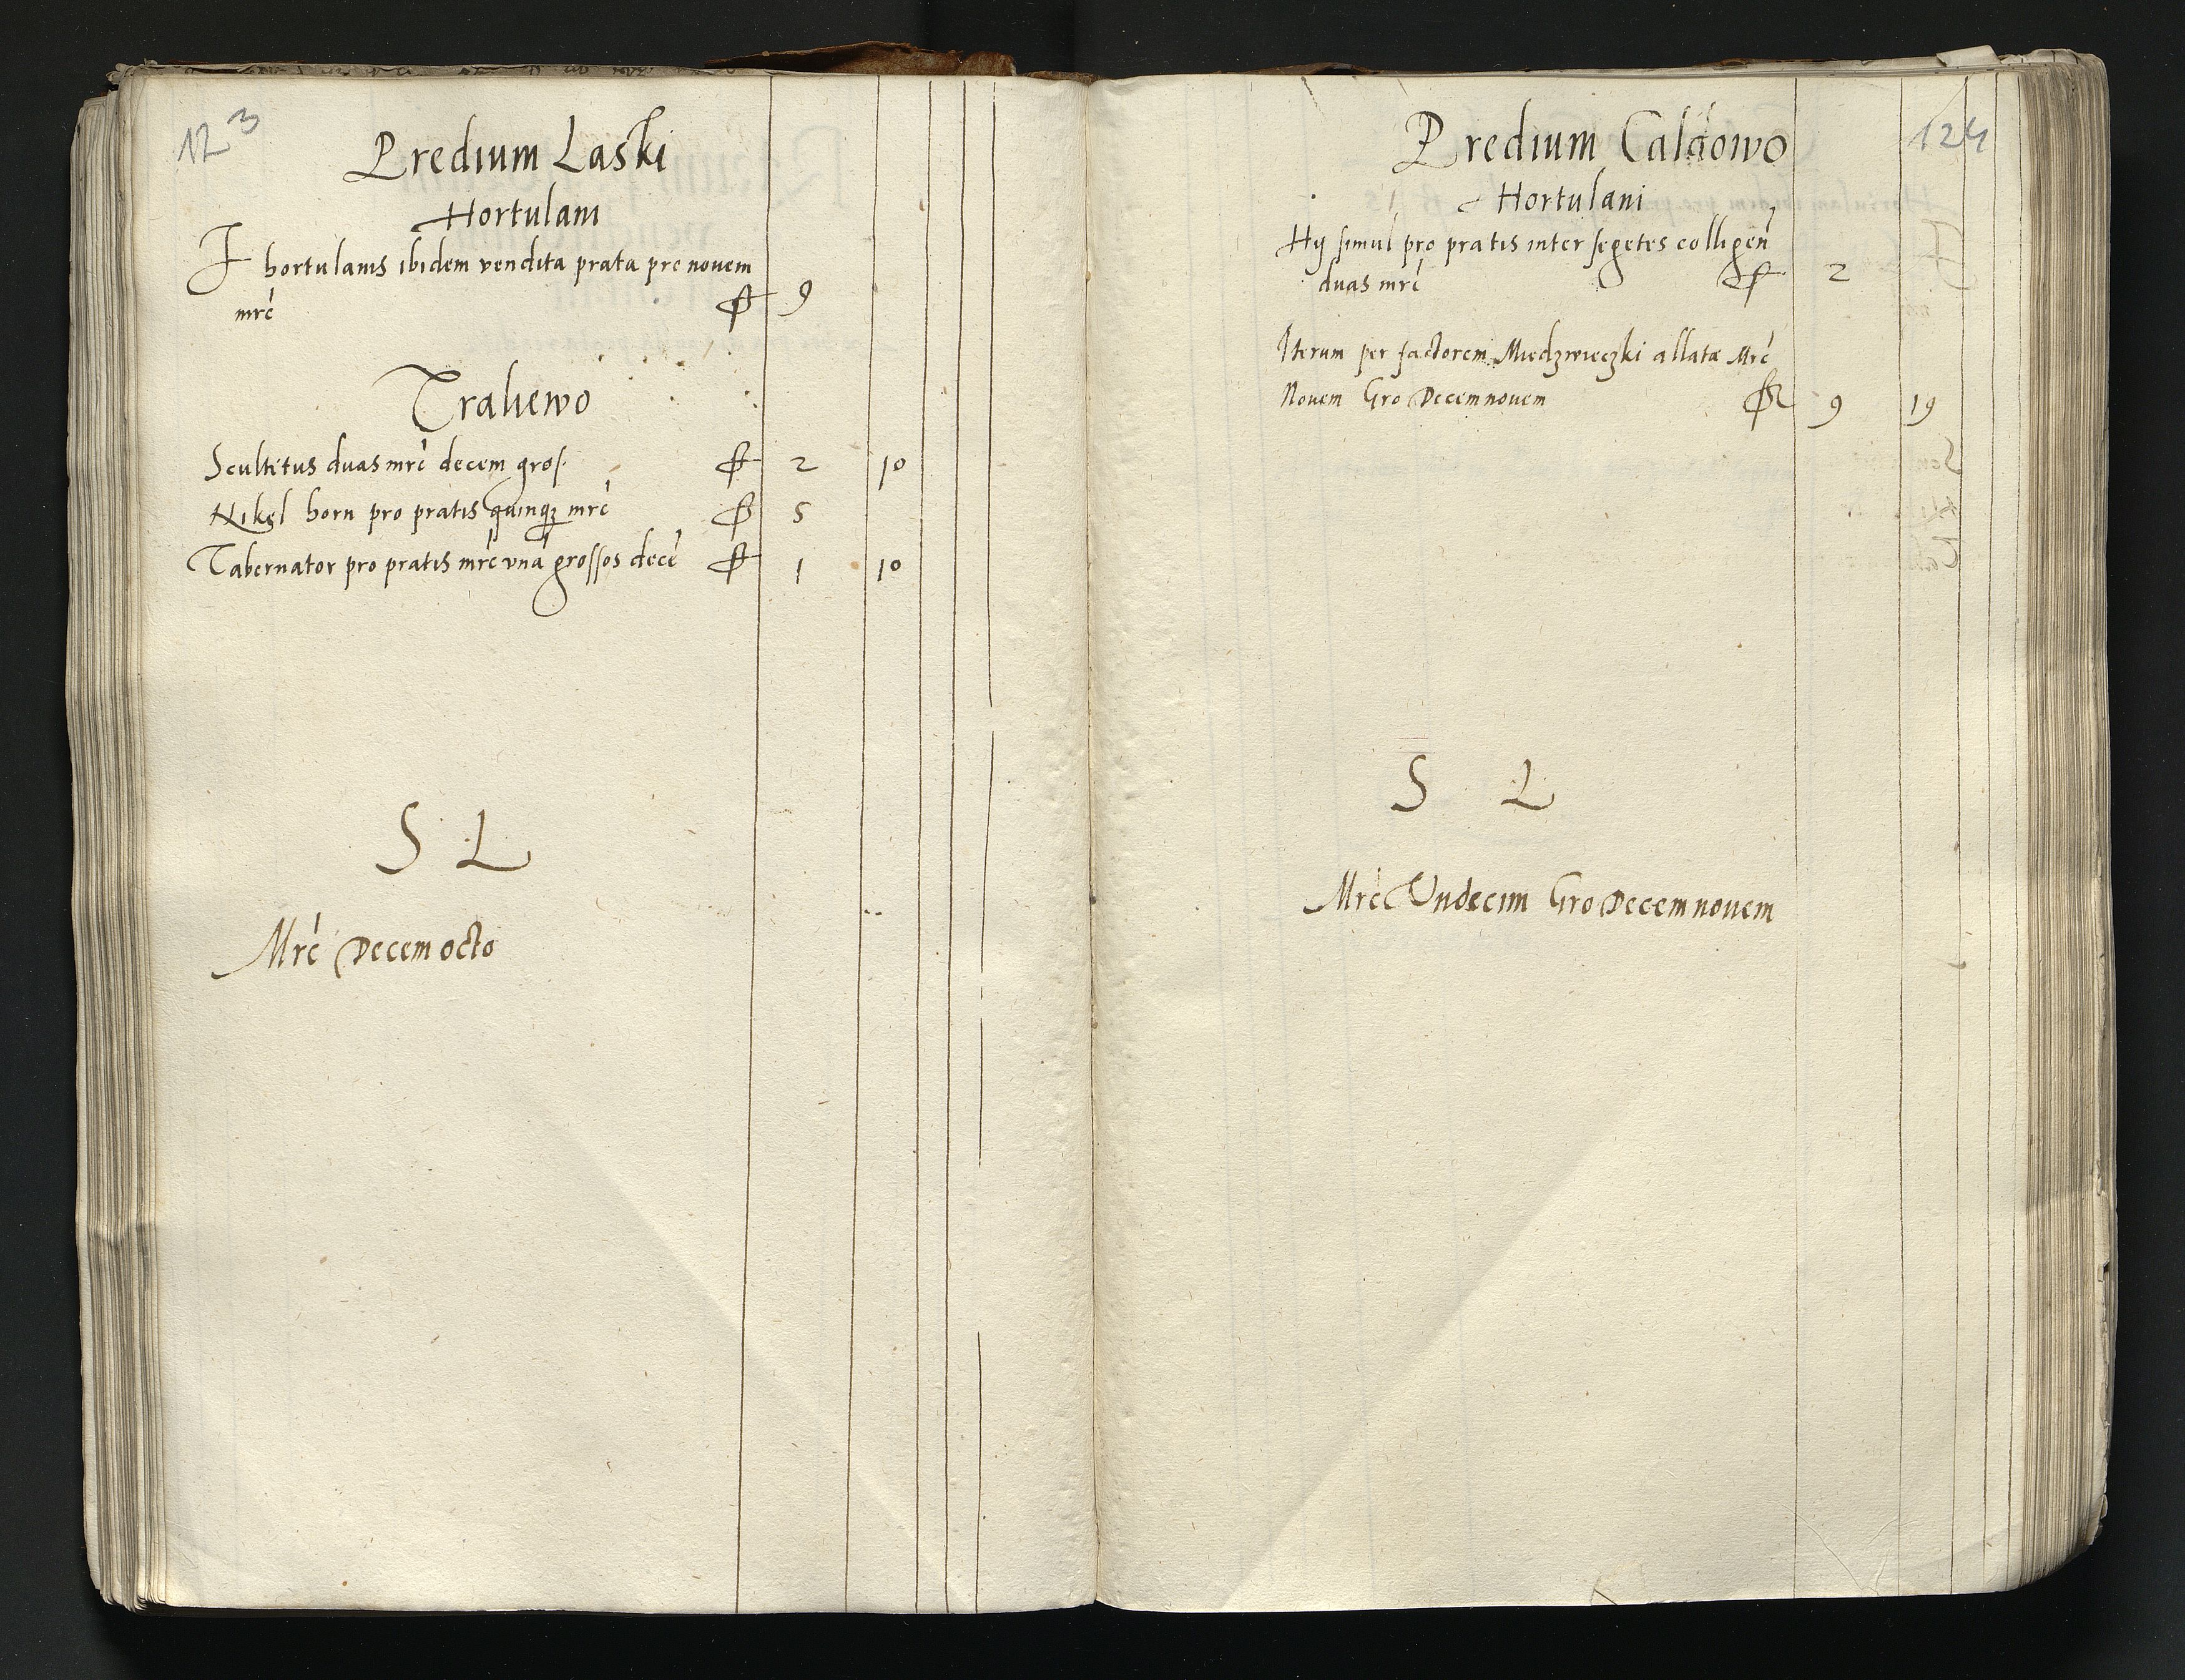 123
Predium Laski
Hortulani
hortulanis ibidem vendita prata pro novem
mrć 9
Traliewo
Scultitus duas mrć decem gros. 2 10
Nikel horn pro pratis quinq3 mrć 5
Tabernator pro pratis mrć vnā grossos decē 1 10
S L
Mrć Decem octo
124
Predium Caldowo
Hortulani
Hij simul pro pratis inter segetes colligen
duas mrć 2
Iterum per factorem Miedzwieczki allatæ Mrć
Novem Gro Decemnovem 9 19
S L
Mrć Vndecim Gro Decemnovem